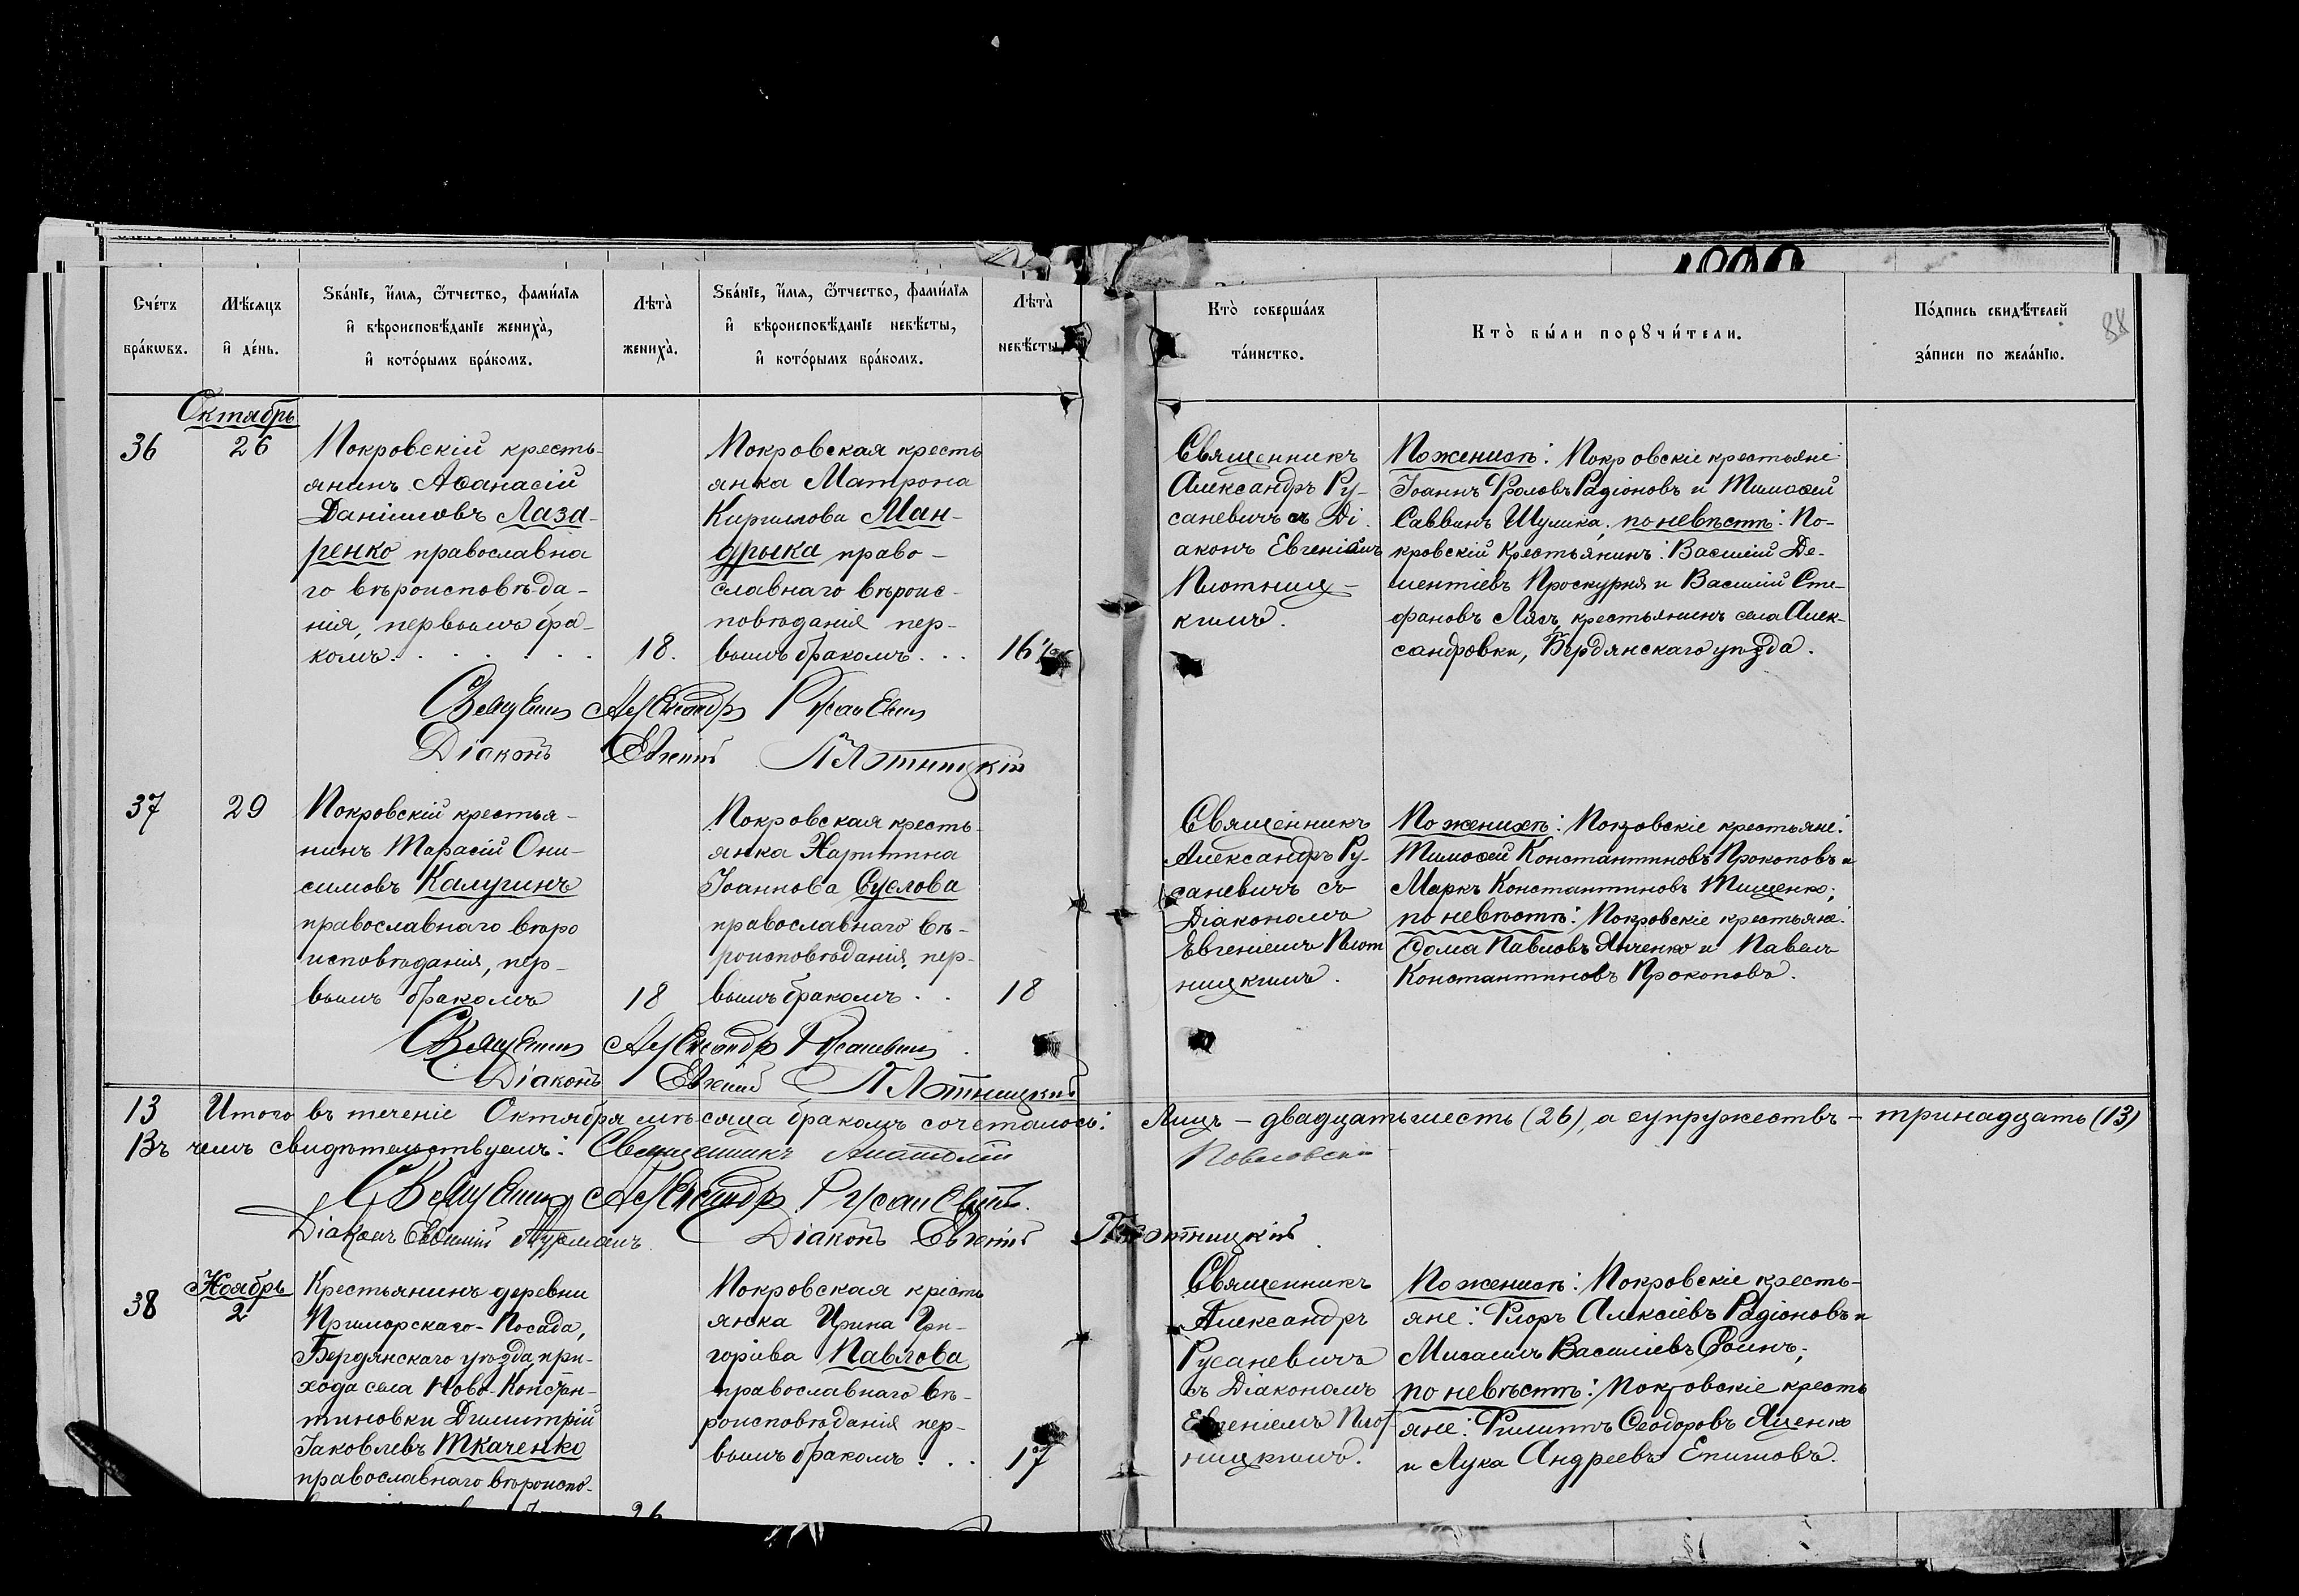 Счетъ
браковъ.
Мѣсяцъ
и день.
Званіе, имя, отчество, фамилія
и вѣроисповѣданіе жениха,
и которымъ бракомъ.
Лѣта
жениха.
Званіе, имя, отчество, фамилія
и вѣроисповѣданіе невѣсты,
и которымъ бракомъ.
Лѣта
невѣсты
Кто совершалъ
таинство.
Кто были поручители.
Подпись свидѣтелей
записи по желанію.
Октябрь
36
26
Покровскій кресть-
янинъ Аѳанасій
Даніиловъ Лаза-
ренко православна
го вѣроисповѣда-
нія, первымъ бра-
комъ.
18.
Покровская кресть
янка Матрона
Кириллова Ман-
дрыка право-
славнаго вѣроис-
повѣданія пер-
вымъ бракомъ...
16½
Священникъ
Александръ Ру-
саневичъ съ Ді-
аконъ Евгеніемъ
Плотниц-
кимъ.
По женихѣ: Покровскіе крестьяне:
Іоаннъ Фроловъ Радіоновъ и Тимоѳей
Саввинъ Шулика; по невѣстѣ: По-
кровскій крестьянинъ: Василій Де-
ментіевъ Проскурня и Василій Сте-
фановъ Ляхъ, крестьянинъ села Алек-
сандровки, Бердянскаго уѣзда.
Священникъ Александръ Русаневичъ
Діаконъ Евгеній Плотницкій
37
29
Покровскій крестья-
нинъ Тарасій Они-
симовъ Калугинъ
православнаго вѣро
исповѣданія, пер-
вымъ бракомъ
18
Покровская кресть-
янка Харитина
Іоаннова Суслова
православнаго вѣ-
роисповѣданія, пер-
вымъ бракомъ..
18
Священникъ
Александръ Ру-
саневичъ съ
Діакономъ
Евгеніемъ Плот
ницкимъ.
По женихѣ: Покровскіе крестьяне:
Тимоѳей Константиновъ Прокоповъ и
Маркъ Константиновъ Тищенко;
по невѣстѣ: Покровскіе крестьяне:
Ѳома Павловъ Янченко и Павелъ
Константиновъ Прокоповъ.
Священникъ Александръ Русаневичъ.
Діаконъ Евгеній Плотницкій
13 Итого въ теченіе Октября мѣсяца бракомъ сочеталось: Лицъ - двадцать шесть (26), а супружествъ - тринадцать (13)
Въ чемъ свидѣтельствуемъ: Священникъ Анатолій
Священникъ Александръ Русаневичъ.
Діаконъ Евгеній Плотницкій.
Ноябрь
38
2
Крестьянинъ деревни
Приморскаго-Посада,
Бердянскаго уѣзда, при-
хода села Ново-Констан-
тиновки Димитрій
Іаковлевъ Ткаченко
православнаго вѣроиспо-
26
Покровская кресть
янка Ирина Гри-
горіева Павлова
православнаго вѣ-
роисповѣданія пер-
вымъ бракомъ...
17
Священникъ
Александръ
Русаневичъ
съ Діакономъ
Евгеніемъ Плот
ницкимъ.
По женихѣ: Покровскіе кресть-
яне: Флоръ Алексіевъ Радіоновъ и
Мисаилъ Василіевъ Ѳоинъ;
по невѣстѣ: Покровскіе кресть
яне: Филиппъ Ѳеодоровъ Яценко
и Лука Андреевъ Епишовъ.